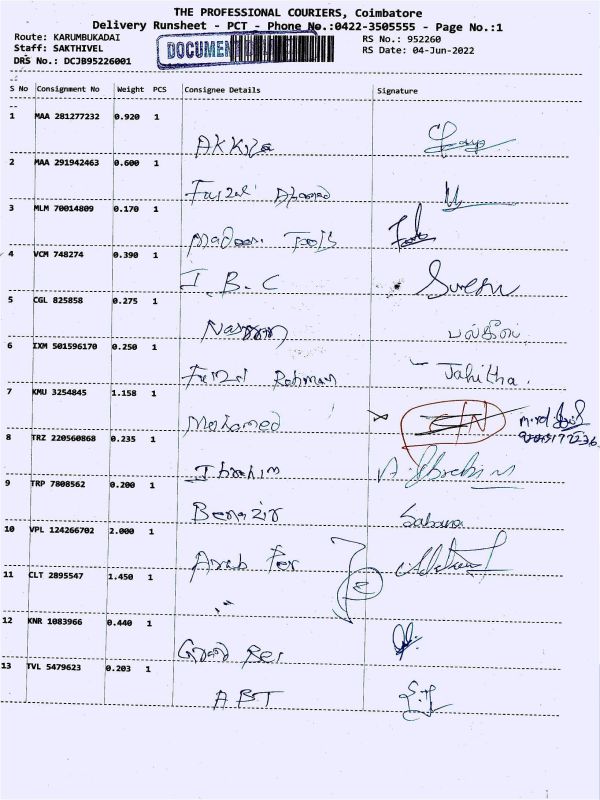 THE PROFESSIONAL COURIERS, Coimbatore
Delivery Runsheet - PCT - Phone No.:0422-3505555 - Page No.:1
Route: KARUMBUKADAI RS No.: 952260
Staff: SAKTHIVEL DOCUMEN RS Date: 04-Jun-2022
DRS No.: DCJB95226001
S No Consignment No Weight PCS Consignee Details Signature
1 MAA 281277232 0.920 1
2 MAA 291942463 0.600 1
3 MLM 70014809 0.170 1
Tools
4 VCM 748274 0.390 1
I. B. C
5 CGL 825858 0.275 1
6 IXM 501596170 0.250 1
Faizal Rahman Jahitha.
7 KMU 3254845 1.158 1
Mohamed
8 TRZ 220560868 0.235 1
Ibrahim A. Ibrahim
9 TRP 7808562 0.200 1
Benazir Sabana
10 VPL 124266702 2.000 1
Arab
11 CLT 2895547 1.450 1
12 KNR 1083966 0.440 1
Grand
13 TVL 5479623 0.203 1
ABT